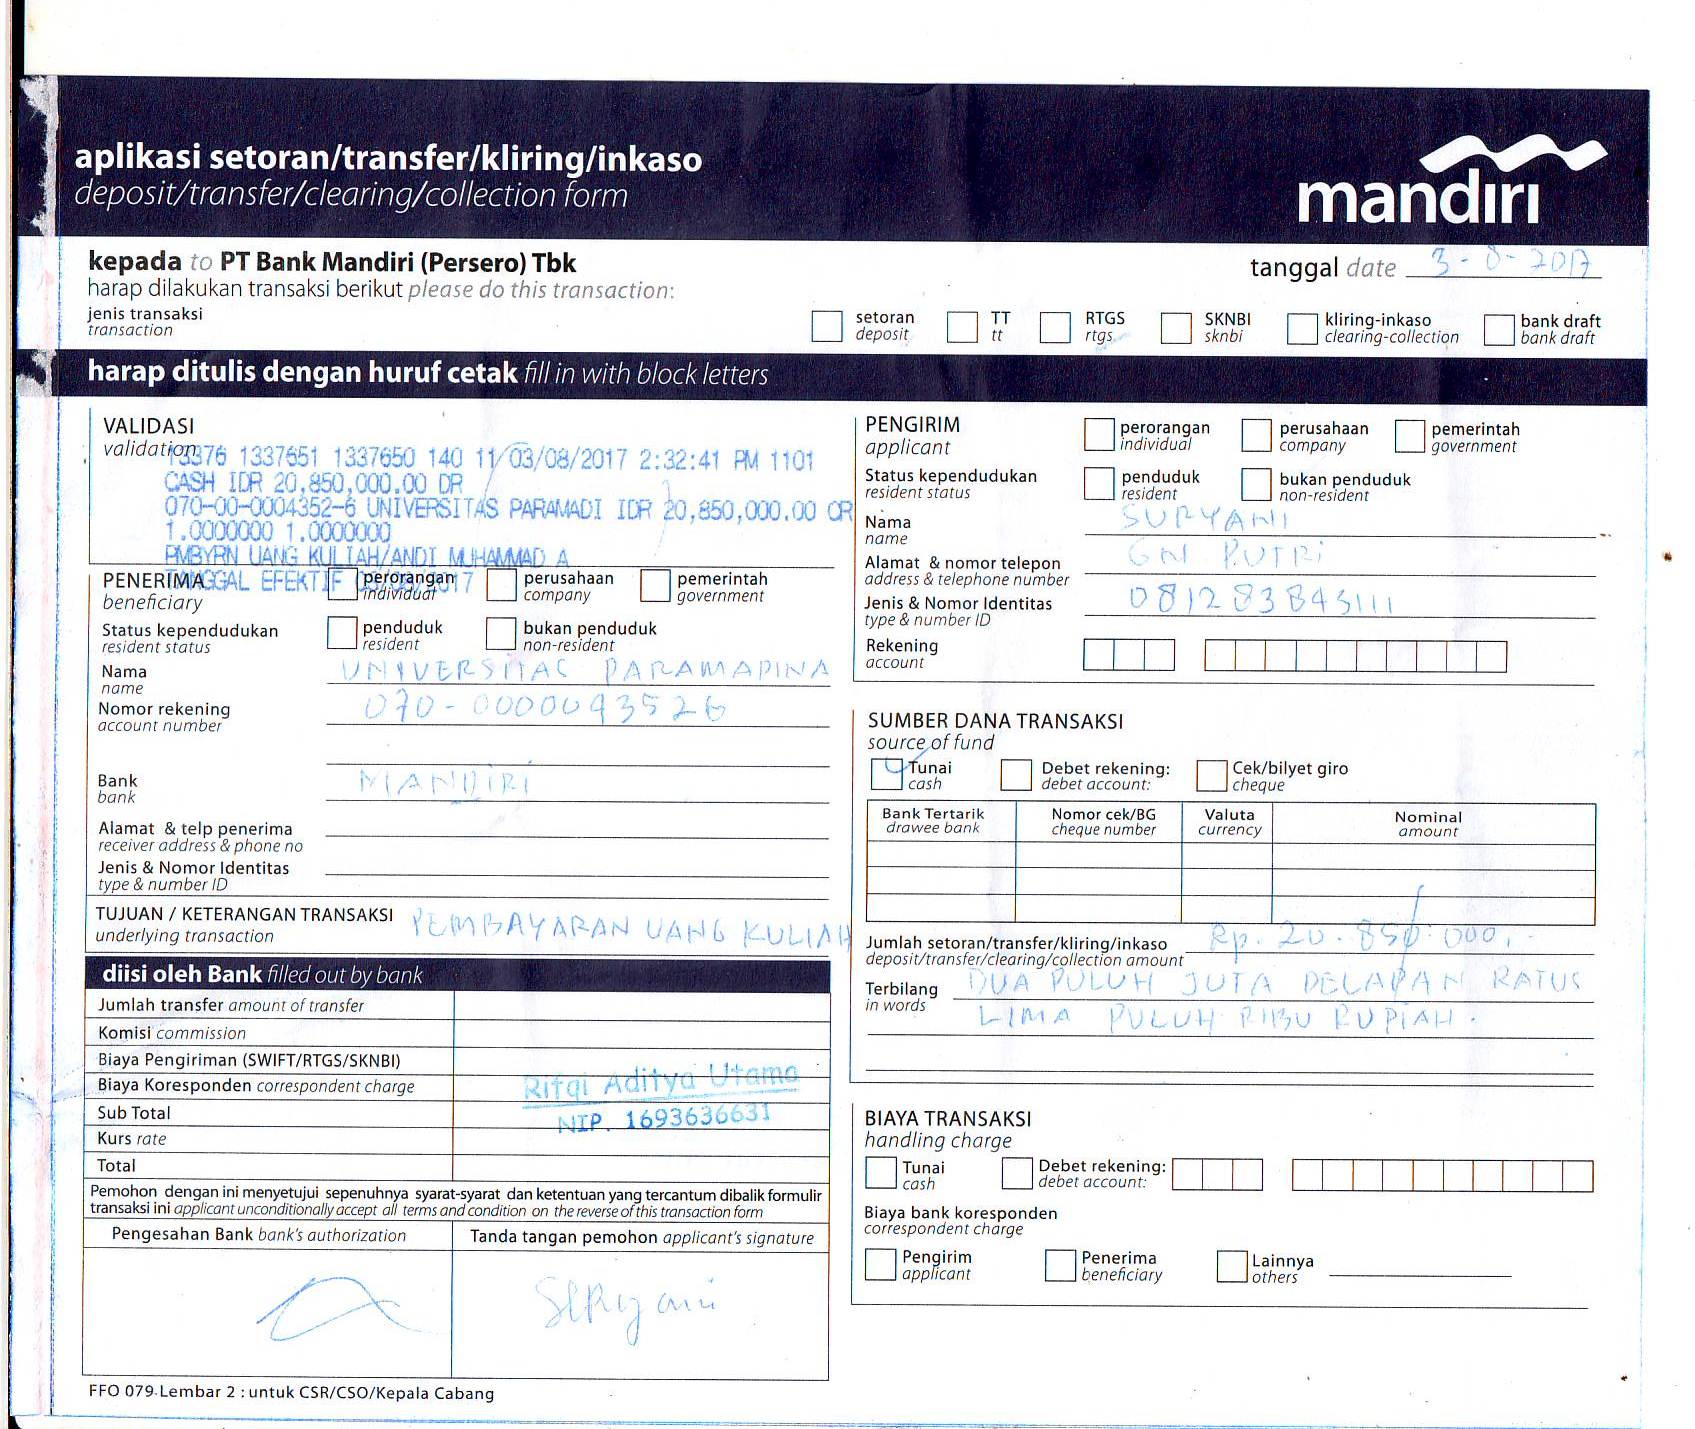 aplikasi setoran/transfer/kliring/inkaso
deposit/transfer/clearing/collection form
mandırı
kepada to PT Bank Mandiri (Persero) Tbk
tanggal date 3-8-2017
harap dilakukan transaksi berikut please do this transaction:
jenis transaksi
transaction
setoran
deposit
TT
tt
RTGS
rtgs
SKNBI
sknbi
kliring-inkaso
clearing-collection
bank draft
bank draft
harap ditulis dengan huruf cetak fill in with block letters
VALIDASI
validation
13376 1337651 1337650 140 11 03/08/2017 2:32:41 PM 1101
CASH IDR 20,850,000.00 DR
070-00-0004352-6 UNIVERSITAS PARAMADI IDR 20,850,000.00 CR
1.0000000 1.0000000
PMBYRN UANG KULIAH/ANDI MUHAMMAD A
TANGGAL EFEKTIF 03/08/2017
PENERIMA
beneficiary
perorangan
individual
perusahaan
company
pemerintah
government
Status kependudukan
resident status
penduduk
resident
bukan penduduk
non-resident
Nama
name
UNIVERSITAS PARAMADINA
Nomor rekening
account number
070-0000043526
Bank
bank
MANDIRI
Alamat & telp penerima
receiver address & phone no
Jenis & Nomor Identitas
type & number ID
TUJUAN / KETERANGAN TRANSAKSI
underlying transaction
PEMBAYARAN UANG KULIAH
diisi oleh Bank filled out by bank
Jumlah transfer amount of transfer
Komisi commission
Biaya Pengiriman (SWIFT/RTGS/SKNBI)
Biaya Koresponden correspondent charge
Sub Total
Kurs rate
Total
Rifqi Aditya Utama
NIP. 1693636631
Pemohon dengan ini menyetujui sepenuhnya syarat-syarat dan ketentuan yang tercantum dibalik formulir
transaksi ini applicant unconditionally accept all terms and condition on the reverse of this transaction form
Pengesahan Bank bank's authorization
Tanda tangan pemohon applicant's signature
Suryani
FFO 079 Lembar 2 : untuk CSR/CSO/Kepala Cabang
PENGIRIM
applicant
perorangan
individual
perusahaan
company
pemerintah
government
Status kependudukan
resident status
penduduk
resident
bukan penduduk
non-resident
Nama
name
SURYANI
Alamat & nomor telepon
address & telephone number
GN PUTRI
Jenis & Nomor Identitas
type & number ID
081283843111
Rekening
account
SUMBER DANA TRANSAKSI
source of fund
Tunai
cash
Debet rekening:
debet account:
Cek/bilyet giro
cheque
Bank Tertarik
drawee bank
Nomor cek/BG
cheque number
Valuta
currency
Nominal
amount
Jumlah setoran/transfer/kliring/inkaso
deposit/transfer/clearing/collection amount
Rp. 20.850.000,-
Terbilang
in words
DUA PULUH JUTA DELAPAN RATUS
LIMA PULUH RIBU RUPIAH.
BIAYA TRANSAKSI
handling charge
Tunai
cash
Debet rekening:
debet account:
Biaya bank koresponden
correspondent charge
Pengirim
applicant
Penerima
beneficiary
Lainnya
others